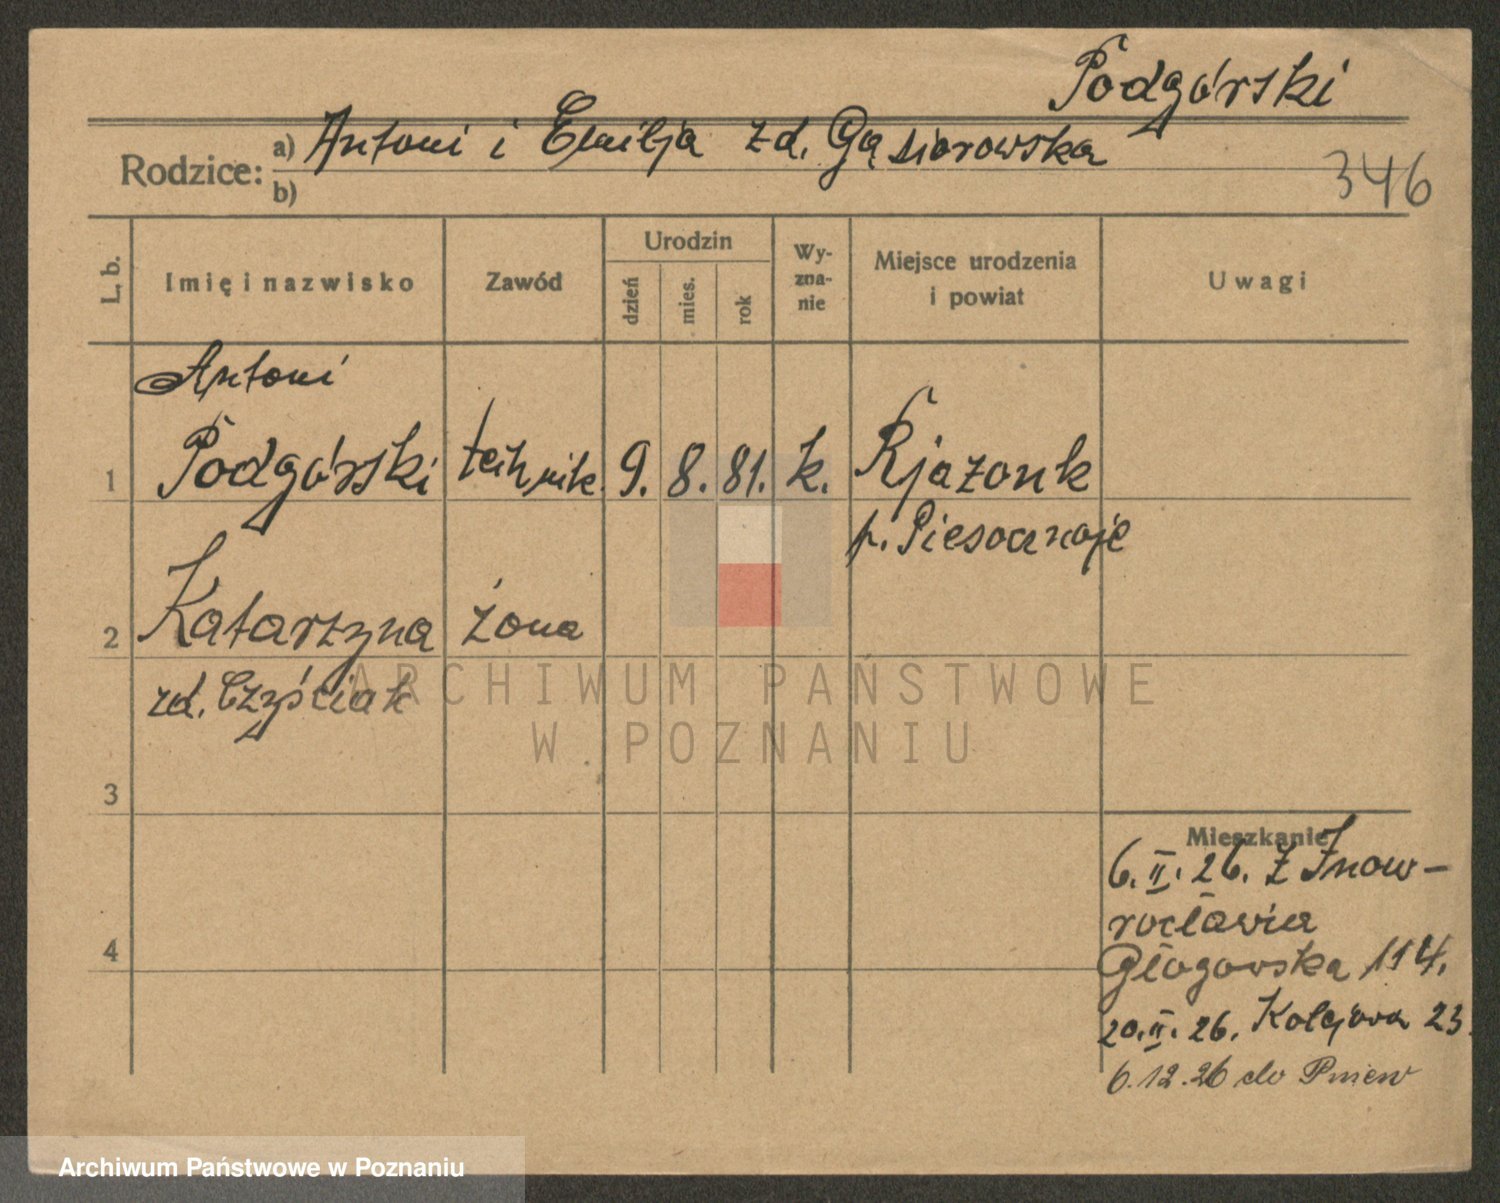 Podgórski
Rodzice: a) Antoni i Emilja zd. Gąsiorowska
b)
346
L. b.
Imię i nazwisko
Zawód
Urodzin
dzień
mies.
rok
Wy-
zna-
nie
Miejsce urodzenia
i powiat
Uwagi
Antoni
1 Podgórski technik. 9. 8. 81. k. Rjazonk
p. Piesocznoje
2 Katarzyna żona
zd. Czyściak
3
4
Mieszkanie
6. II. 26. Z Inow-
rocławia
Głogowska 114.
20. II. 26. Kolejowa 23.
6.12.26 do Pniew
ARCHIWUM PAŃSTWOWE
W POZNANIU
Archiwum Państwowe w Poznaniu